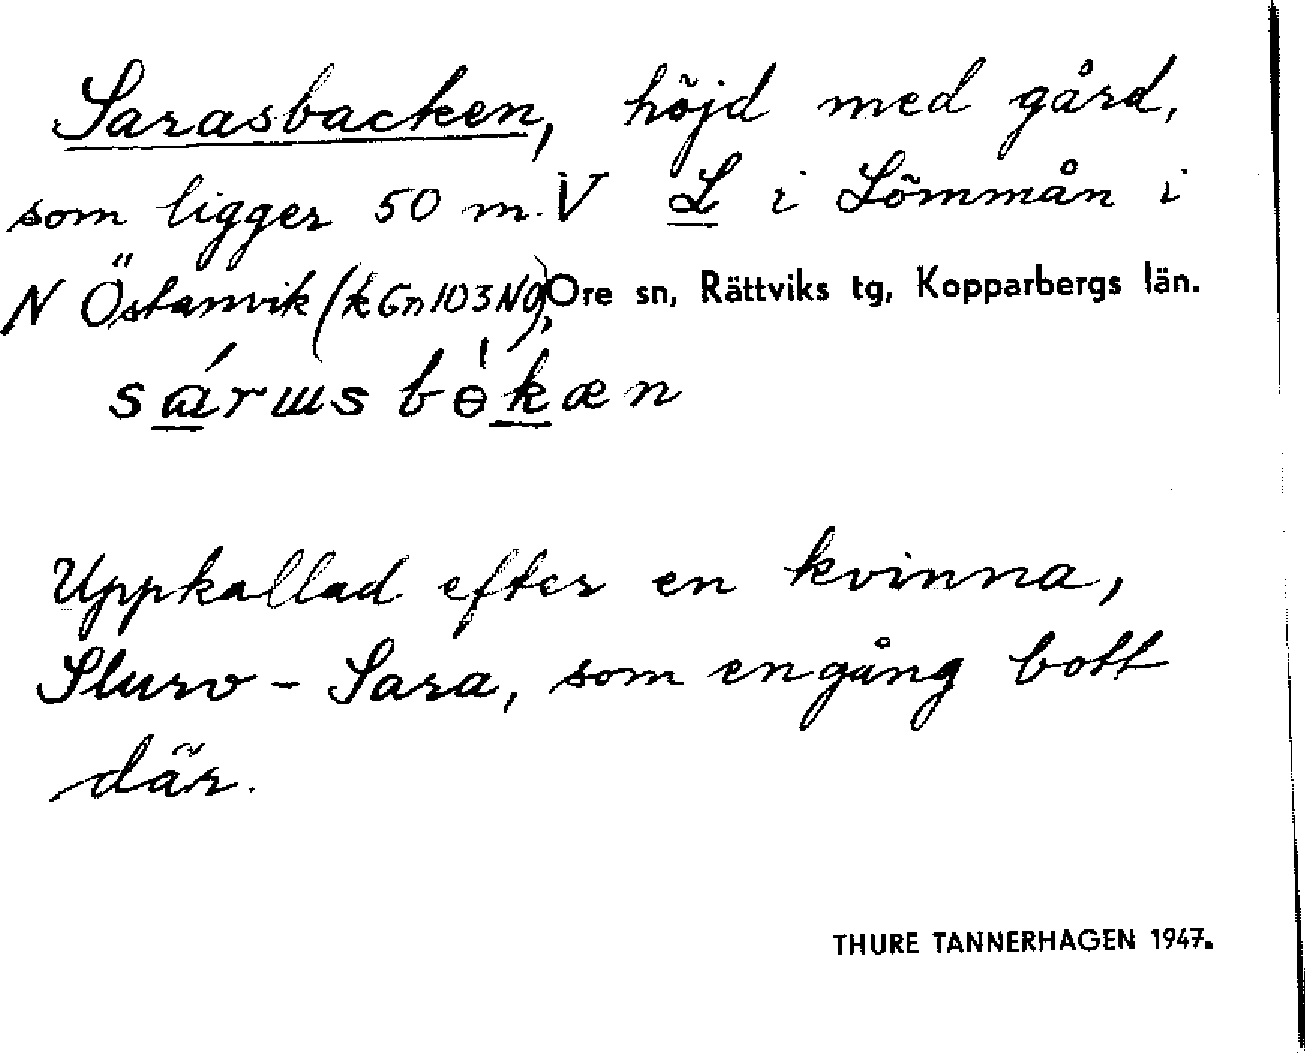 Sarasbacken, höjd med gård,
som ligger 50 m. V L i Lömmån i
N Östanvik (k Gn 103 NO), Ore sn, Rättviks tg, Kopparbergs län.
Uppkallad efter en kvinna,
Slurv-Sara, som engång bott
där.
THURE TANNERHAGEN 1947.